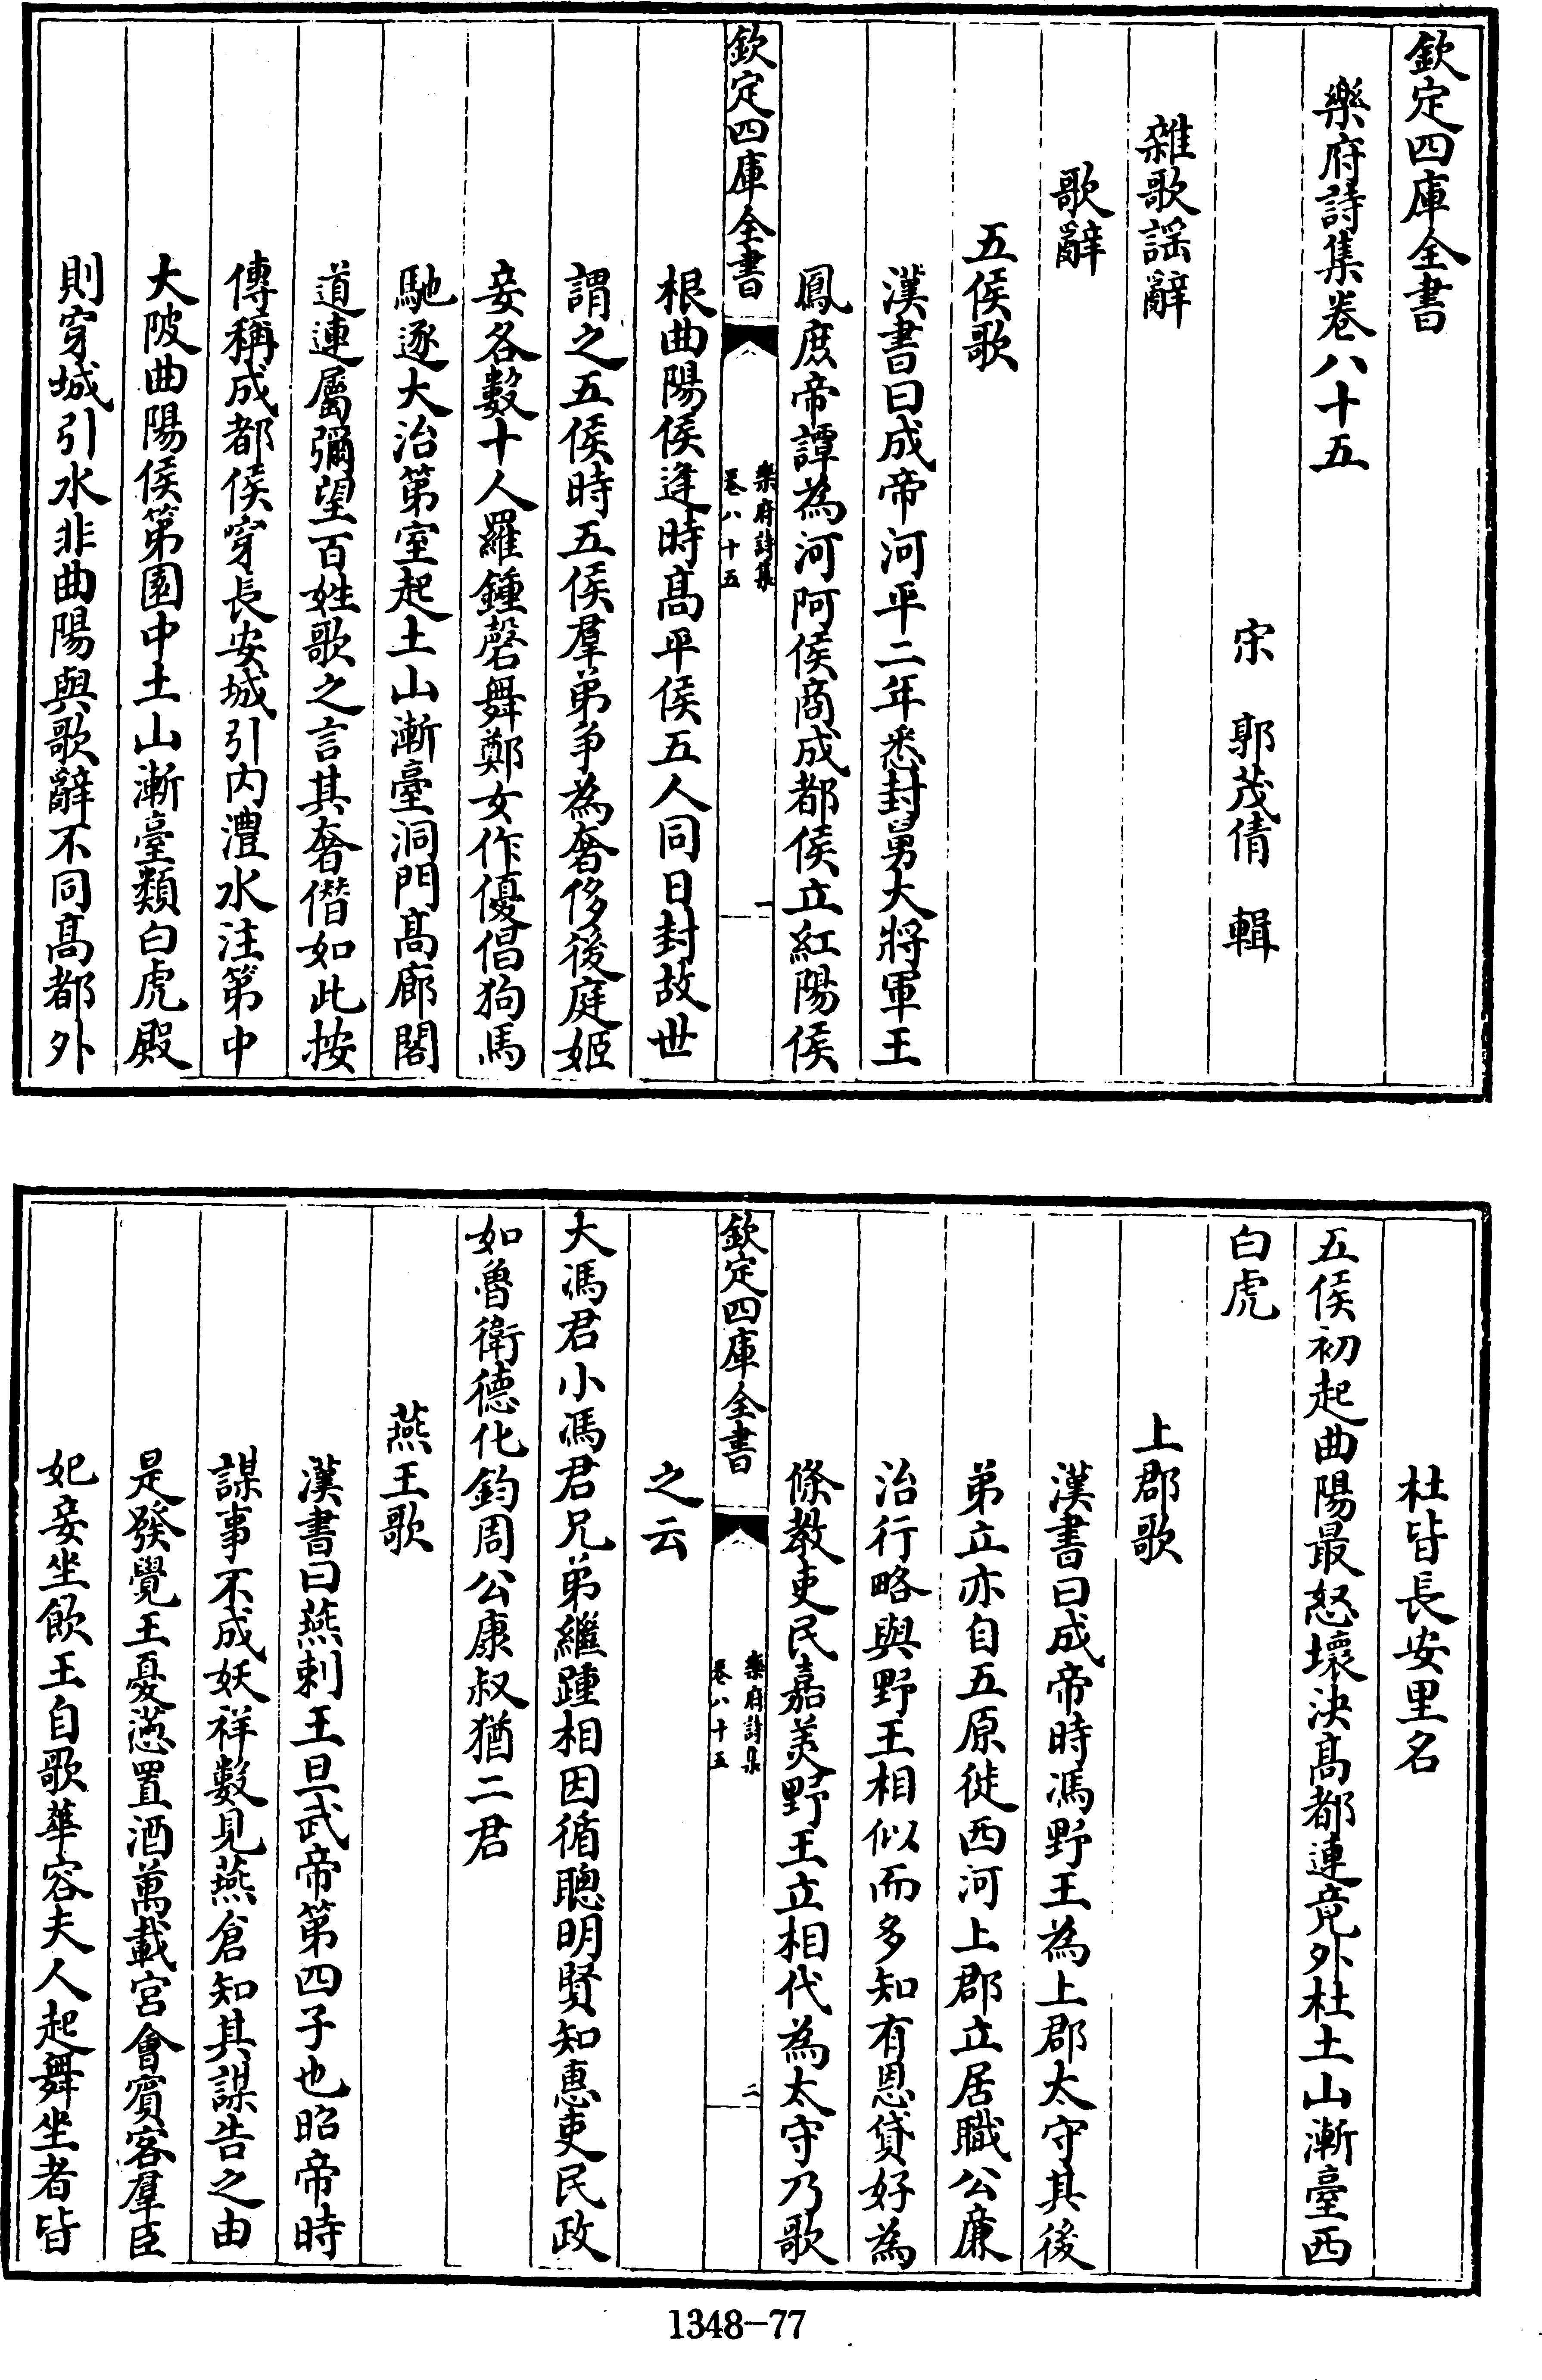 欽定四庫全書
樂府詩集卷八十五
宋　郭茂倩　輯
雜歌謡辭
歌辭
五侯歌
漢書曰成帝河平二年悉封舅大將軍王
鳳庶帝譚為河阿侯商成都侯立紅陽侯
欽定四庫全書
樂府詩集
卷八十五
一
根曲陽侯逢時髙平侯五人同日封故世
謂之五侯時五侯羣弟爭為奢侈後庭姬
妾各數十人羅鍾磬舞鄭女作優倡狗馬
馳逐大治第室起土山漸臺洞門髙廊閣
道連屬彌望百姓歌之言其奢僭如此按
傳稱成都侯穿長安城引内澧水注第中
大陂曲陽侯第園中土山漸臺類白虎殿
則穿城引水非曲陽與歌辭不同髙都外
杜皆長安里名
五侯初起曲陽最怒壞決髙都連竟外杜土山漸臺西
白虎
上郡歌
漢書曰成帝時馮野王為上郡太守其後
弟立亦自五原徙西河上郡立居職公廉
治行略與野王相似而多知有恩貸好為
條教吏民嘉美野王立相代為太守乃歌
欽定四庫全書
樂府詩集
卷八十五
二
之云
大馮君小馮君兄弟繼踵相因循聰明賢知惠吏民政
如魯衛德化鈞周公康叔猶二君
燕王歌
漢書曰燕剌王旦武帝第四子也昭帝時
謀事不成妖祥數見燕倉知其謀告之由
是發覺王憂懣置酒萬載宮會賓客羣臣
妃妾坐飲王自歌華容夫人起舞坐者皆
1348-77